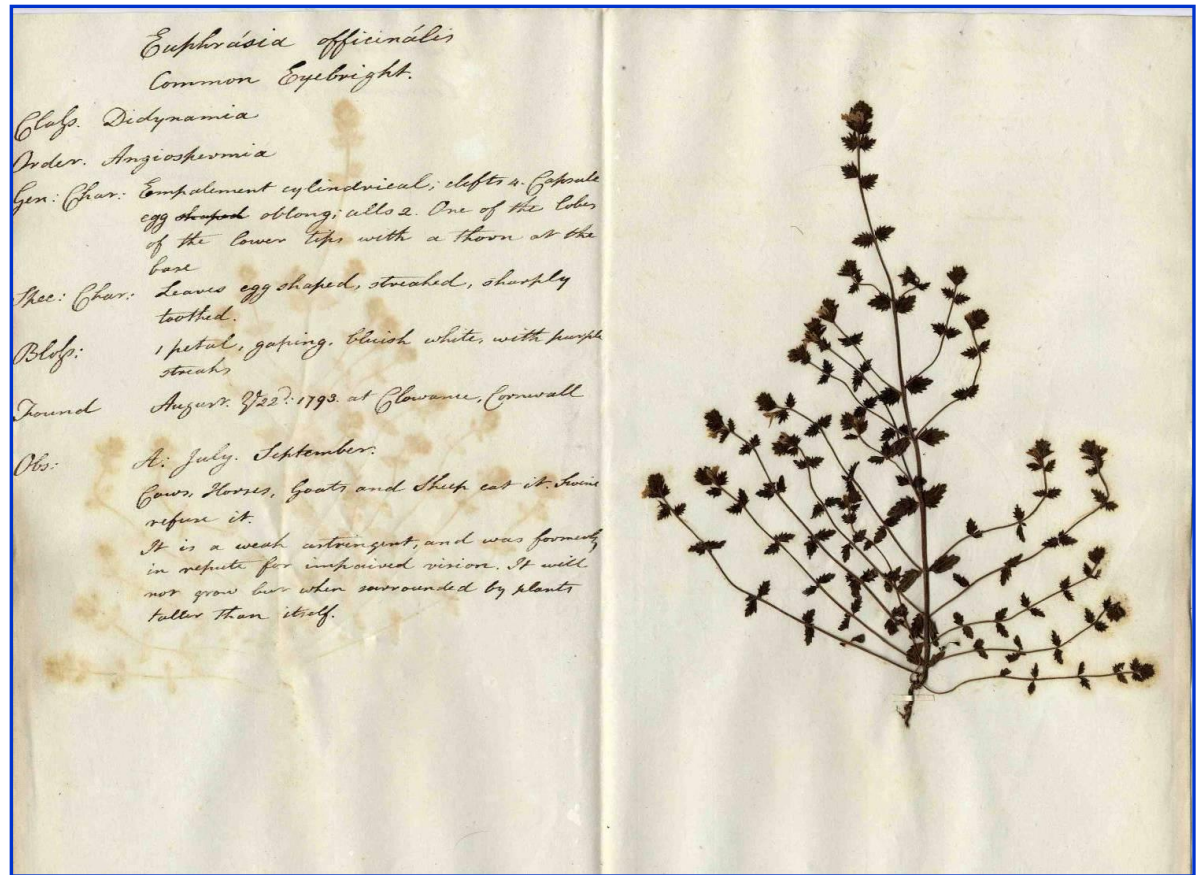 Euphrásia officinális
Common Eyebright.
Claſs. Didynamia
Order. Angiospermia
Gen: Char: Empalement cylindrical; clefts 4. Capsule
egg shaped oblong; cells 2. One of the lobes
of the lower tips with a thorn at the
base
Spec: Char: Leaves egg shaped, streaked, sharply
toothed.
Bloſs: 1 petal, gaping, bluish white, with purple
streaks
Found August. 22d: 1793. at Clowance, Cornwall
Obs: A: July. September.
Cows, Horses, Goats and Sheep eat it. Swine
refuse it.
It is a weak astringent, and was formerly
in repute for impaired vision. It will
not grow but when surrounded by plants
taller than itself.